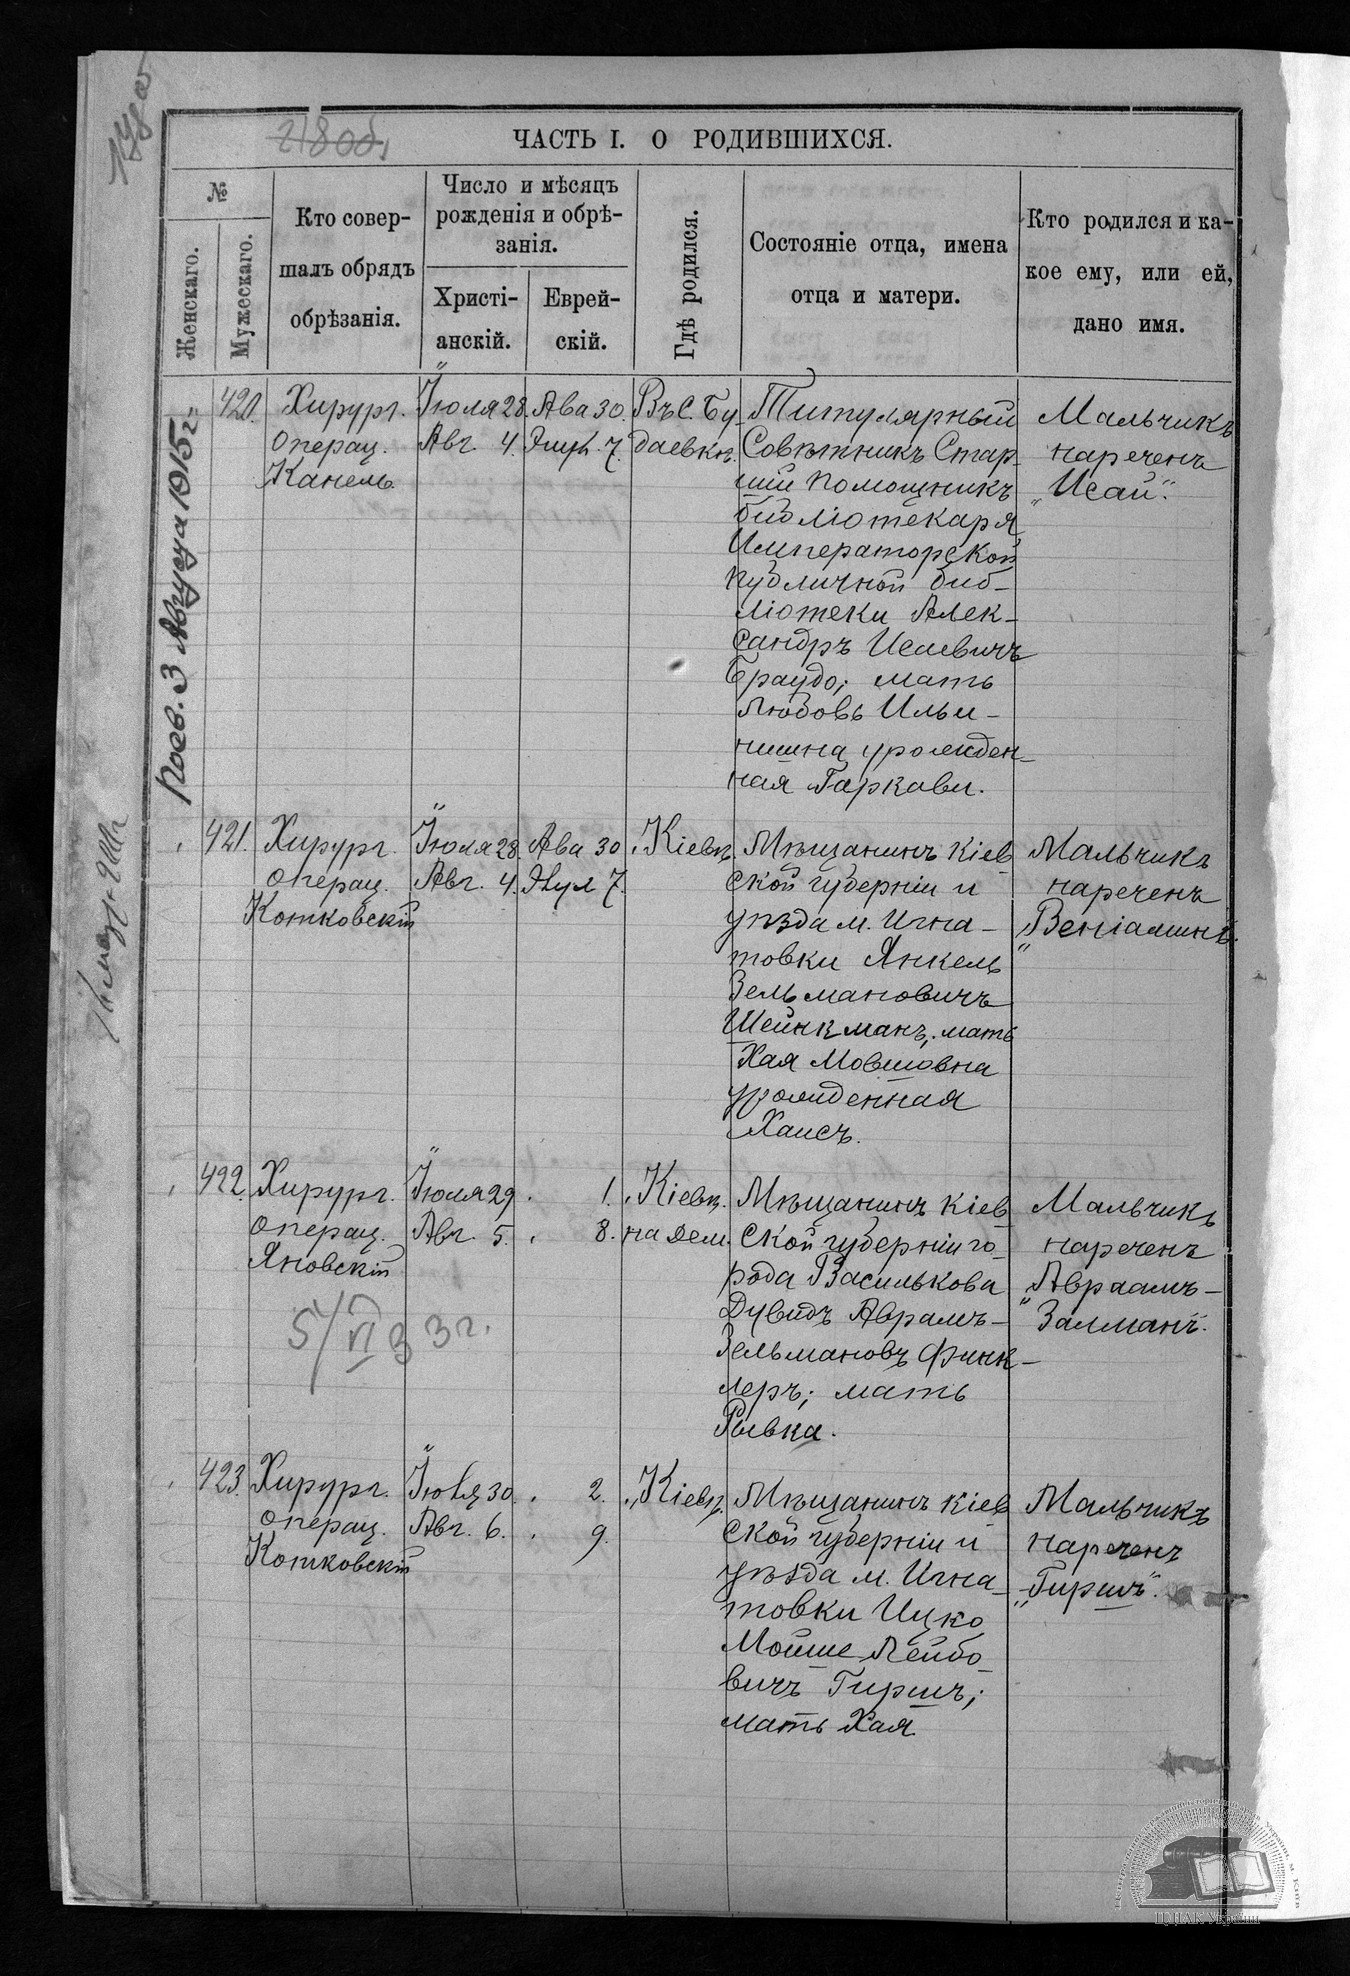 218об.
ЧАСТЬ I. О РОДИВШИХСЯ.
№
Женскаго.
Мужескаго.
Кто совер-
шалъ обрядъ
обрѣзанія.
Число и мѣсяцъ
рожденія и обрѣ-
занія.
Христі-
анскій.
Еврей-
скій.
Гдѣ родился.
Состояніе отца, имена
отца и матери.
Кто родился и ка-
кое ему, или ей,
дано имя.
3 Августа 1915 г.
420.
Хирург.
операц.
Канель
Іюля 28.
Авг. 4.
Ава 30.
Элул. 7.
Въ С. Бу-
даевкѣ.
Титулярный
Совѣтникъ Стар-
шій помощникъ
библіотекаря
Императорской
публичной биб-
ліотеки Алек-
сандръ Исаевичъ
Браудо; мать
Любовь Ильи-
нишна урожден-
ная Гаркави.
Мальчикъ
нареченъ
„Исай".
421.
Хирург.
операц.
Котковскій
Іюля 28.
Авг. 4.
Ава 30
Элул 7.
Кіевѣ.
Мѣщанинъ Кіев
ской губерніи и
уѣзда м. Игна-
товки Янкель
Зельмановичъ
Шейнкманъ, мать
Хая Мовшовна
урожденная
Хаисъ.
Мальчикъ
нареченъ
„Веніаминъ".
422.
Хирург.
операц.
Яновскій
Іюля 29.
Авг. 5.
1.
8.
Кіевѣ.
на Дем.
Мѣщанинъ Кіев
ской губерніи го-
рода Василькова
Дувидъ Аврамъ-
Зельмановъ Финк-
леръ; мать
Рывка.
Мальчикъ
нареченъ
„Авраамъ-
Залманъ".
5/VI 33г.
423.
Хирург.
операц.
Котковскій
Іюля 30.
Авг. 6.
2.
9.
Кіевѣ.
Мѣщанинъ Кіев
ской губерніи и
уѣзда м. Игна-
товки Ицко
Мойше Лейбо-
вичъ Гиршъ;
мать Хая
Мальчикъ
нареченъ
„Гиршъ".
ЦДІАК України